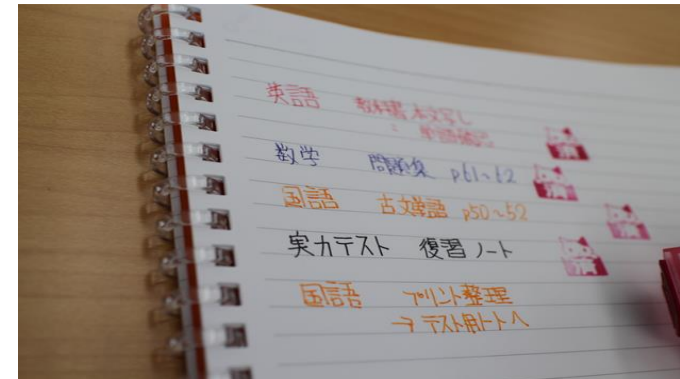 英語 教科書本文写し
: 単語暗記 済
数学 問題集 p61~62 済
国語 古文単語 p50~52 済
実力テスト 復習ノート 済
国語 プリント整理
→ テスト用ノートへ